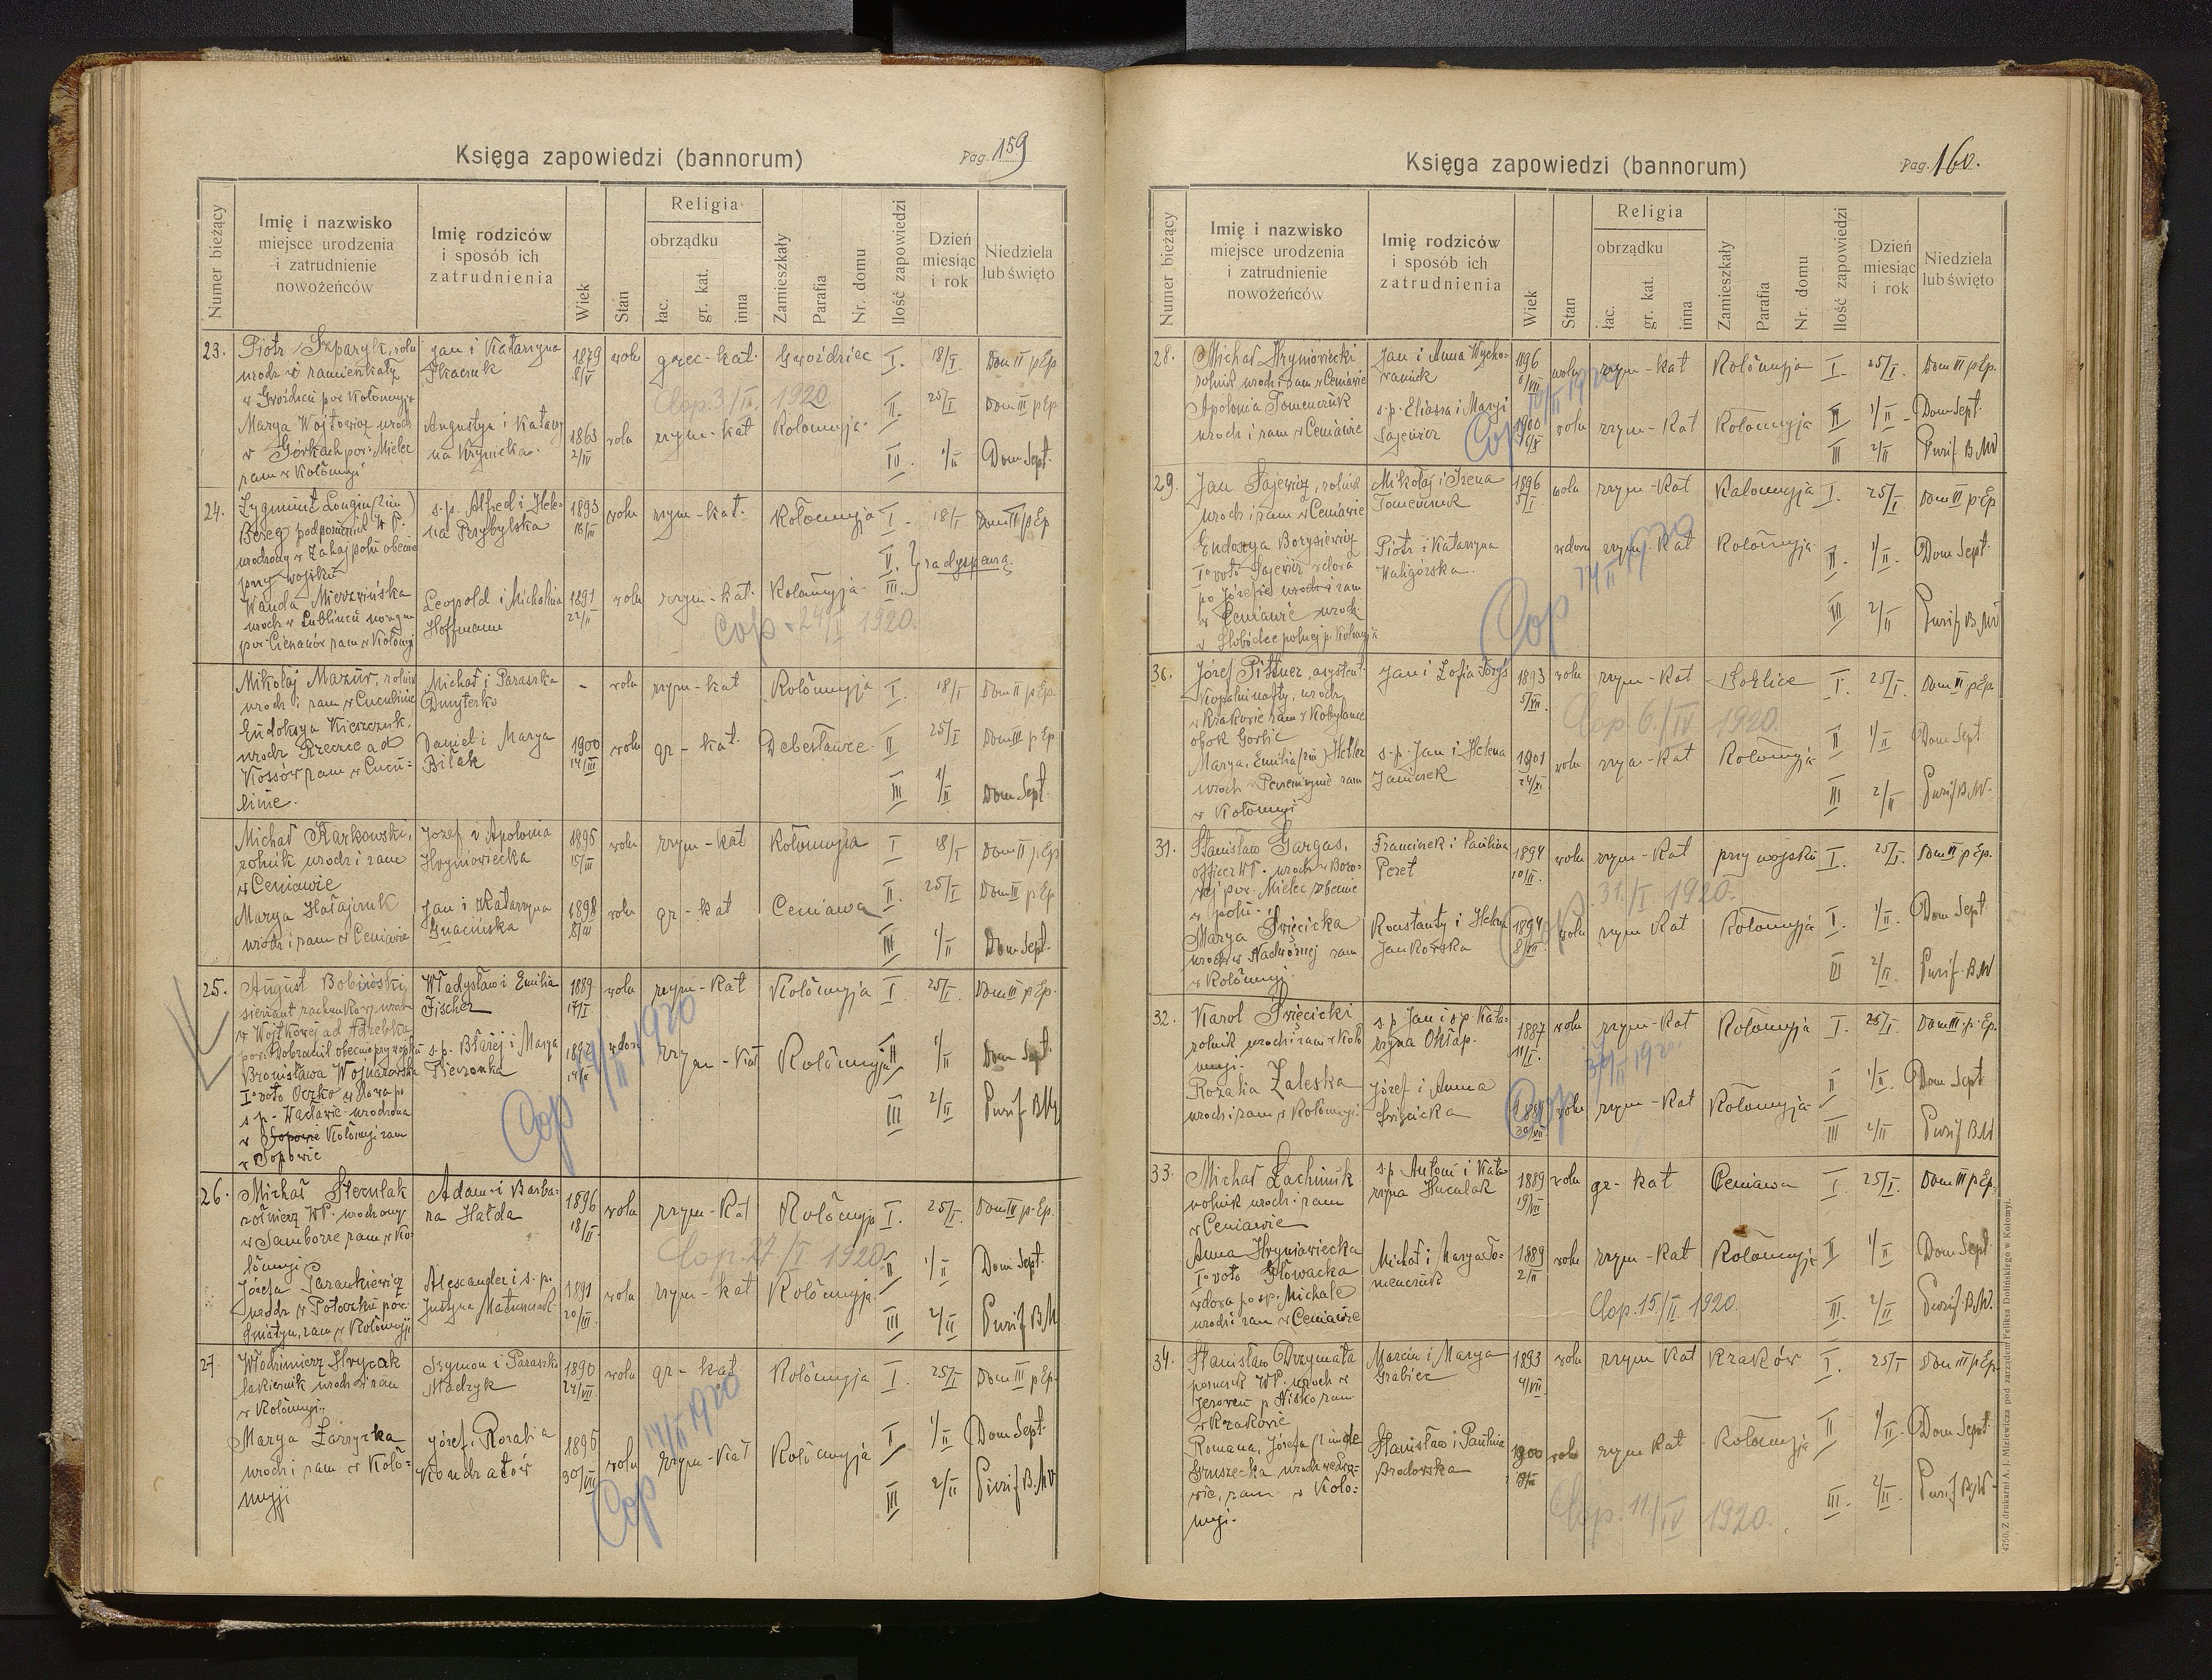 Księga zapowiedzi (bannorum)
Pag. 159
Numer bieżący
Imię i nazwisko
miejsce urodzenia
i zatrudnienie
nowożeńców
Imię rodziców
i sposób ich
zatrudnienia
Wiek
Stan
Religia
obrządku
łac.
gr. kat.
inna
Zamieszkały
Parafia
Nr. domu
Ilość zapowiedzi
Dzień
miesiąc
i rok
Niedziela
lub święto
23. Piotr Szparyk, rolu Jan i Katarzyna 1879 wolu grec-kat. Gwoździec I. 18/I Dom II p Ep
urodz i zamieszkały Tkaczuk 8/V
w Gwoźdzcu pow Kołomyja
Cop. 3/II 1920. II. 25/I Dom III p Ep
Marya Wojtowicz urodz Augustyn i Katarzy 1863 wolu rzym-kat Kołomyja
w Górkach pow. Mielec na Krynicka. 2/IV III. 1/II Dom Sept.
zam w Kołomyi
24. Zygmunt Longin (2 im) s.p. Alfred i Hele- 1893 wolu rzym-kat. Kołomyja I. 18/I Dom II p Ep
Bereg podporucznik W P. na Przybylska
urodzony w obecnie
przy wojsku II. III. za dyspensą
Wanda Mierzwińska Leopold i Michalina 1891 wolu rzym-kat. Kołomyja
urodz w Lublincu Hoffmann 22/II
pow. Cieszanów zam w Kołomyi Cop. 24/I 1920.
Mikołaj Mazur, rolnik Michał i Paraszka - wolu rzym-kat Kołomyja I. 18/I Dom II p Ep.
urodz i zam w Cucułinie Dmyterko
Eudoksya Kieszczuk, II 25/I Dom III p Ep.
urodz Rzeczce ad Daniel i Marya 1900 wolu gr-kat. Debesławce
Kossów zam w Cucu- Bilak 14/III
linie. III 1/II Dom Sept.
Michał Karkowski, Józef i Apolonia 1895 wolu rzym-kat Kołomyja I 18/I Dom II p Ep
rolnik urodz i zam Hryniowiecka 15/III
w Ceniawie II. 25/I Dom III p Ep
Marya Hałajczuk Jan i Katarzyna 1898 wolu gr-kat Ceniawa
urodz i zam w Ceniawie 8/III III 1/II Dom Sept.
25. August Bobiński, Władysław i Emilia 1889 wolu rzym-kat Kołomyja I 25/I. Dom III p Ep.
sierżant rachunkowy urodz Fischer 17/I
w Wojtkowej ad
pow. Dobromil obecnie przy wojsku s.p. Błażej i Marya wdowa rzym-kat Kołomyja II 1/II Dom Sept.
Bronisława Wojnarowska
I° voto Oczko wdowa po III 2/II Purif BMV
s p. Wacławie urodzona
w Kołomyi zam
w Sopowie
Cop 14/II 1920
26. Michał Stezulak Adam i Barba- 1896 wolu rzym-Kat Kołomyja I. 25/I. Dom III p. Ep.
żołnierz WP. urodzony ra Hałda 18/II
w Samborze zam w Ko-
łomyi Cop. 27/I 1920. II 1/II Dom Sept.
Józefa Garankiewicz Alexander i s. p. 1891 wolu rzym-kat Kołomyja
urodz w Potoczku pow. Justyna 20/III III 2/II Purif BM
Śniatyn, zam w Kołomyji
27. Włodzimierz Hrycak Szymon i Paraszka 1890 wolu gr-kat Kołomyja I 25/I Dom III p Ep.
lakiernik urodz i zam Madryk 24/VII
w Kołomyi,
Marya Zarzycka Józef i Rozalia 1895 wolu rzym-kat Kołomyja I 1/II Dom Sept.
urodz i zam w Koło- Kondratów 30/VII
myji III 2/II Purif B. MV
Cop 14/II 1920
Księga zapowiedzi (bannorum)
Pag. 160.
Numer bieżący
Imię i nazwisko
miejsce urodzenia
i zatrudnienie
nowożeńców
Imię rodziców
i sposób ich
zatrudnienia
Wiek
Stan
Religia
obrządku
łac.
gr. kat.
inna
Zamieszkały
Parafia
Nr. domu
Ilość zapowiedzi
Dzień
miesiąc
i rok
Niedziela
lub święto
28. Michał Hryniowiecki Jan i Anna Wycho- 1896 wolu rzym-kat Kołomyja I 25/I. Dom III p Ep.
rolnik urodz i zam w Ceniawie waniek 6/VII
Apolonia Tomenczuk s.p. Eliasza i Maryi 1900 wolu rzym-Kat Kołomyja II 1/II Dom Sept.
urodz i zam w Ceniawie Sajewicz III 2/II Purif B MV
29. Jan Sajewicz, rolnik Mikołaj i Irena 1896 wolu rzym-Kat Kołomyja I. 25/I. Dom III p Ep
urodz i zam w Ceniawie Tomenczuk 5/I.
Eudoxya Borysiewicz Piotr i Katarzyna wdowa rzym-Kat Kołomyja II. 1/II. Dom Sept.
I° voto Sajewicz wdowa Waligórska.
po Józefie urodz i zam
w Ceniawie urodz. III 2/II Purif B MV
w Słobódce polnej p. Kołomyja
Cop 14/II 1920
30. Józef Pittner, asystent Jan i Zofia 1893 wolu rzym-Kat Gorlice I. 25/I. Dom III p Ep.
Kopalni nafty, urodz 5/VII.
w Krakowie zam w Kobylance Cop. 6./IV 1920.
obok Gorlic II 1/II Dom Sept.
Marya, Emilia (2 im) Heller s.p. Jan i Helena 1901 wolu rzym-Kat Kołomyja
urodz w zam Janiczek 24/XI III 2/II Purif B. MV.
w Kołomyi
31. Stanisław Gargas, Franciszek i Paulina 1894 wolu rzym-Kat przy wojsku I. 25/I. Dom III p Ep.
officer WP. urodz w Boro- Peret 10/II.
wej pow. Mielec obecnie Cop. 31./I 1920.
w polu.
Marya Święcicka Konstanty i Helena 1894 wolu rzym Kat Kołomyja I. 1/II. Dom Sept
urodz w Nadwórnej zam Jankowska 8/XII.
w Kołomyi. III 2/II. Purif. B. MV
32. Karol Święcicki s.p. Jan i s.p. Kata- 1887 wolu rzym-Kat Kołomyja I. 25/I. Dom III p. Ep.
rolnik urodz i zam w Koło rzyna Okłap. 11/I.
myi.
Rozalia Zaleska Józef i Anna wolu rzym-Kat Kołomyja II 1/II. Dom Sept
urodz i zam w Kołomyi. Święcicka III 2/II Purif B MV
33. Michał Lachniuk s.p. Antoni i Kata- 1889 wolu gr-kat Ceniawa I. 25/I. Dom III p Ep.
rolnik urodz i zam rzyna Huculak 19/VII
w Ceniawie
Anna Hryniawiecka Michał i Marya To- 1889 wolu rzym-Kat Kołomyja II 1/II Dom Sept.
I° voto Głowacka menczuk 2/II
wdowa po s.p. Michale
urodz i zam w Ceniawie Cop. 15/II. 1920. III. 2/II Purif B. MV.
34. Stanisław Drzymała Marcin i Marya 1893 wolu rzym kat Kraków I. 25/I Dom III p Ep.
porucznik WP. urodz w Grabiec 4/VII
Jeżowem p Nisko zam
w Krakowie
Romana, Józefa (2 im) de Stanisław i Paulina 1900 wolu rzym Kat Kołomyja II 1/II. Dom Sept
Gruszecka urodz we Lwo- Brodowska
wie, zam w Koło-
myi. Cop. 11/IV 1920. III. 2/II. Purif B MV
4750. Z drukarni A. J. Miziewicza pod zarządem Feliksa Dolińskiego w Kołomyi.